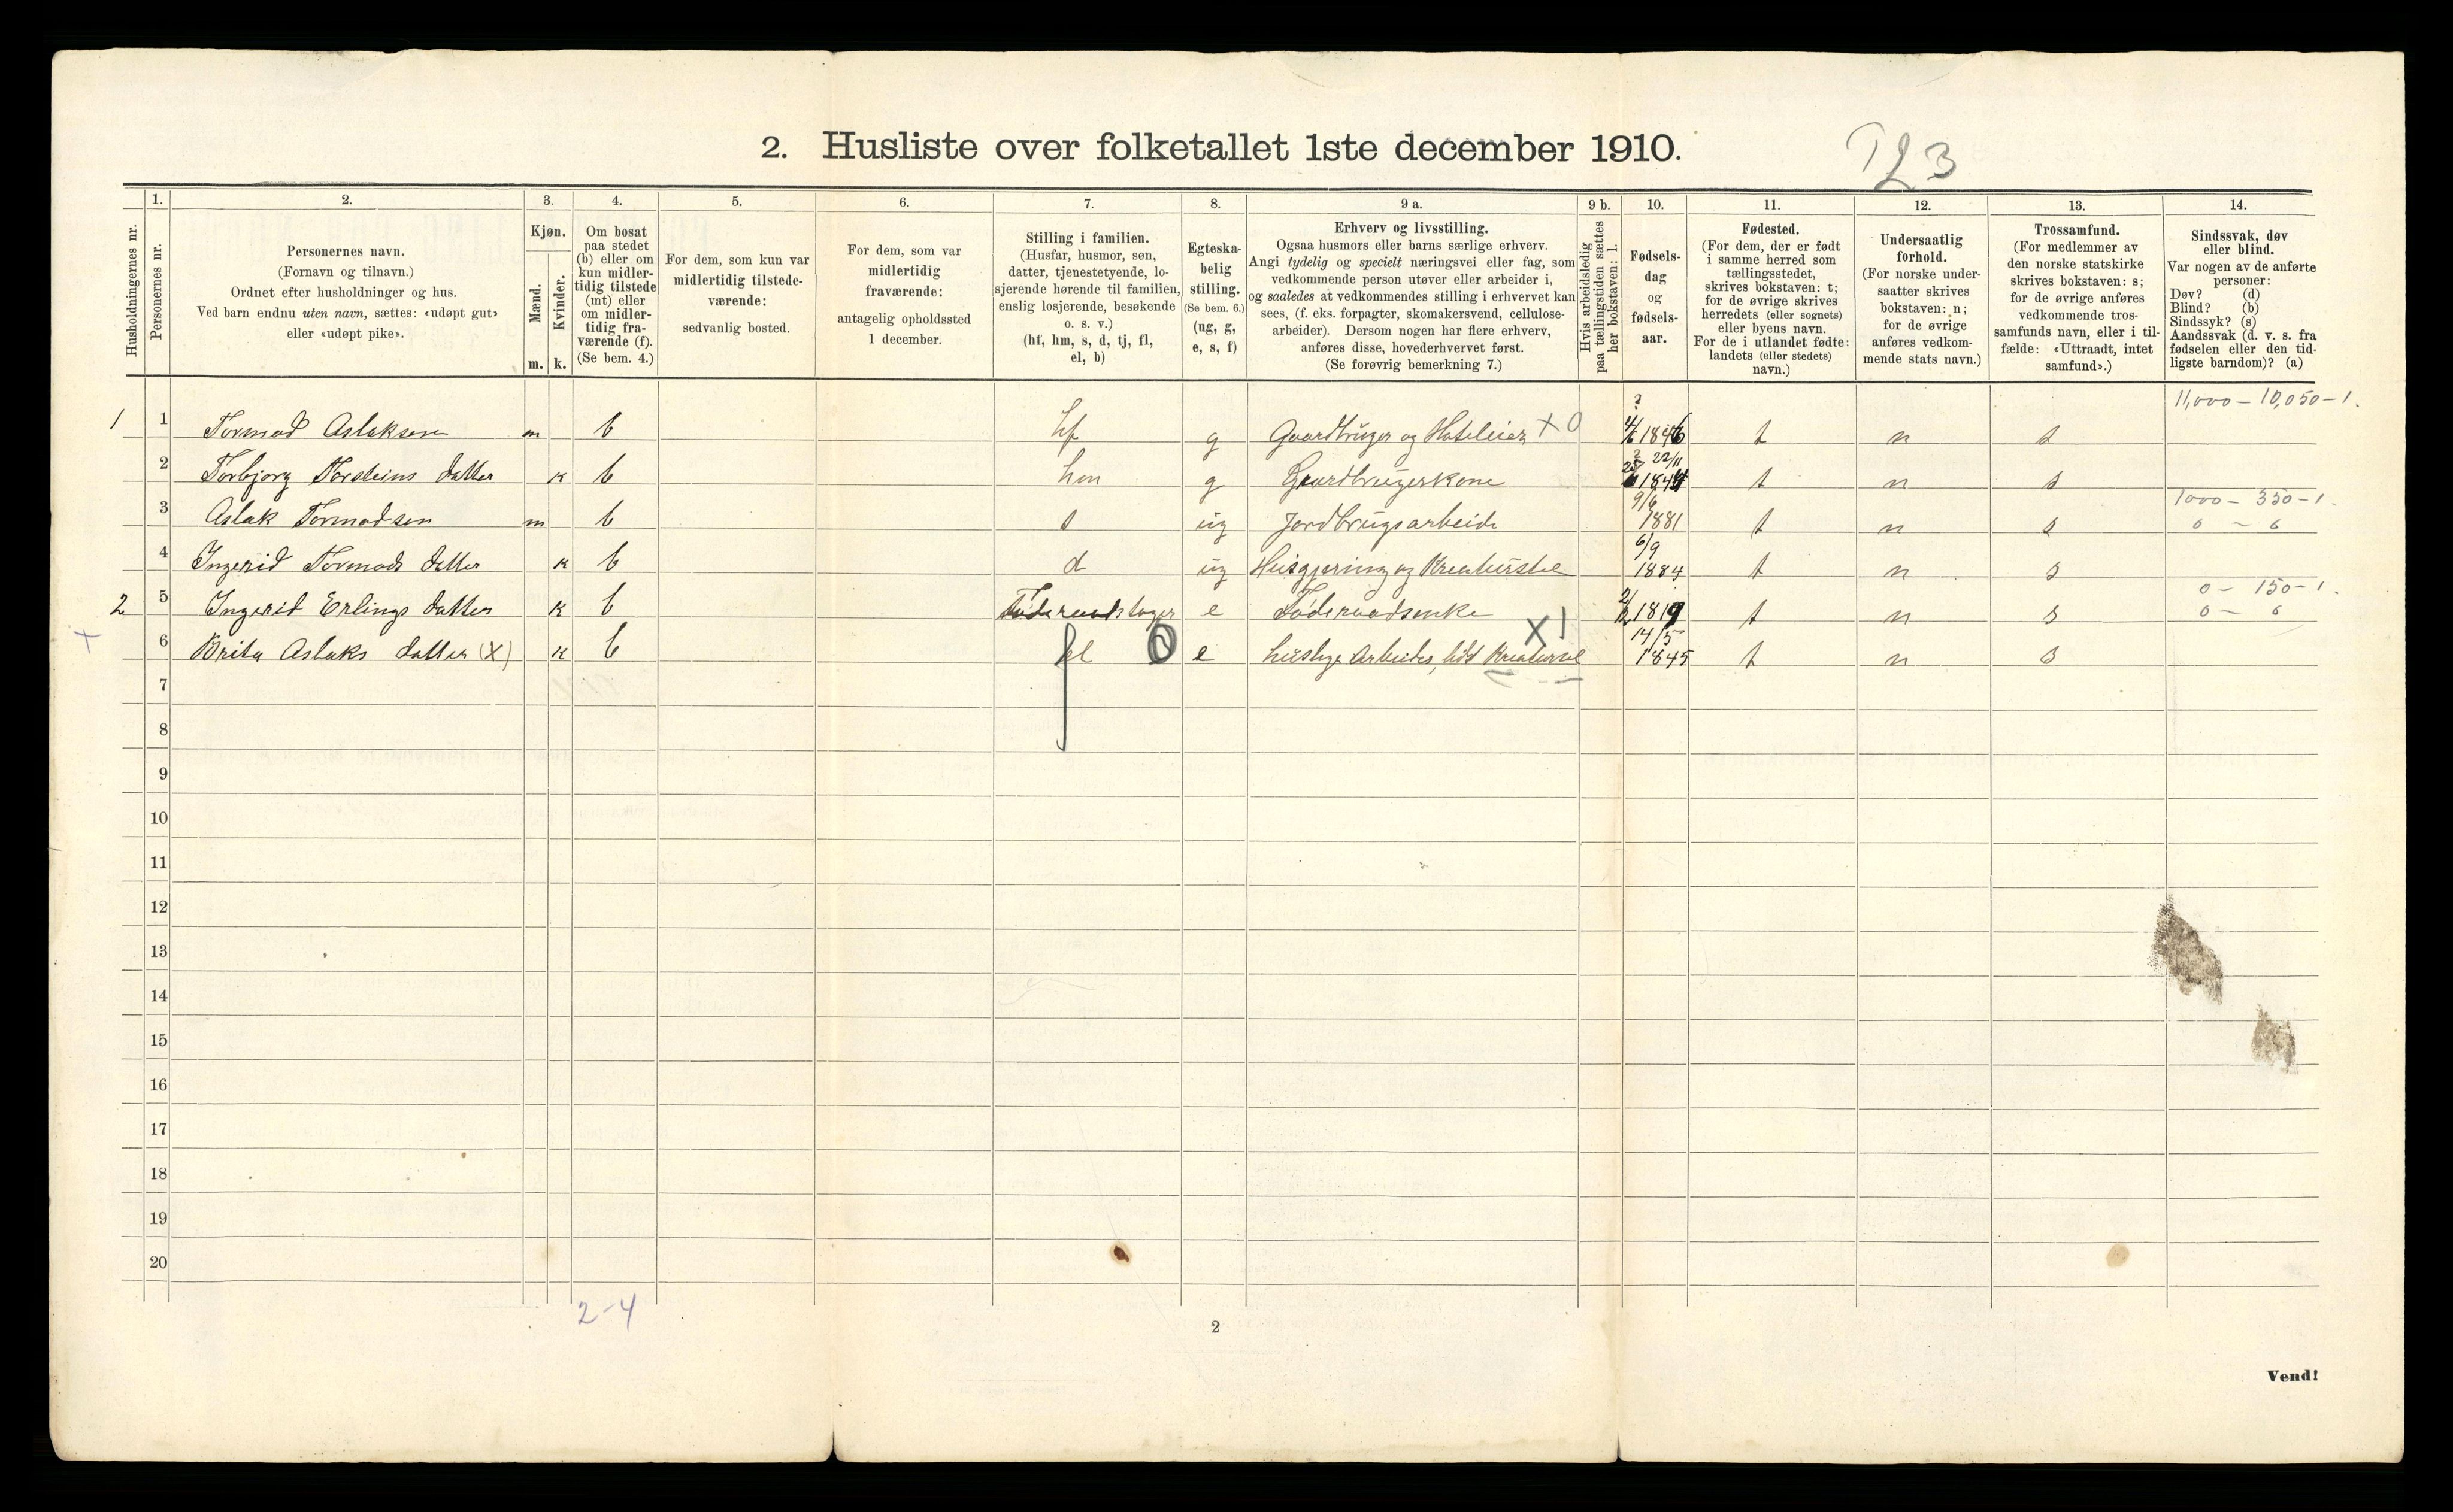 2. Husliste over folketallet 1ste december 1910.
T23
Husholdningernes nr.
1.
Personernes nr.
2.
Personernes navn.
(Fornavn og tilnavn.)
Ordnet efter husholdninger og hus.
Ved barn endnu uten navn, sættes: «udøpt gut»
eller «udøpt pike».
3.
Kjøn.
Mænd.
Kvinder.
m. k.
4.
Om bosat
paa stedet
(b) eller om
kun midler-
tidig tilstede
(mt) eller
om midler-
tidig fra-
værende (f).
(Se bem. 4.)
5.
For dem, som kun var
midlertidig tilstede-
værende:
sedvanlig bosted.
6.
For dem, som var
midlertidig
fraværende:
antagelig opholdssted
1 december.
7.
Stilling i familien.
(Husfar, husmor, søn,
datter, tjenestetyende, lo-
sjerende hørende til familien,
enslig losjerende, besøkende
o. s. v.)
(hf, hm, s, d, tj, fl,
el, b)
8.
Egteska-
belig
stilling.
(Se bem. 6.)
(ug, g,
e, s, f)
9 a.
Erhverv og livsstilling.
Ogsaa husmors eller barns særlige erhverv.
Angi tydelig og specielt næringsvei eller fag, som
vedkommende person utøver eller arbeider i,
og saaledes at vedkommendes stilling i erhvervet kan
sees, (f. eks. forpagter, skomakersvend, cellulose-
arbeider). Dersom nogen har flere erhverv,
anføres disse, hovederhvervet først.
(Se forøvrig bemerkning 7.)
9 b.
Hvis arbeidsledig
paa tællingstiden sættes
her bokstaven: l.
10.
Fødsels-
dag
og
fødsels-
aar.
11.
Fødested.
(For dem, der er født
i samme herred som
tællingsstedet,
skrives bokstaven: t;
for de øvrige skrives
herredets (eller sognets)
eller byens navn.
For de i utlandet fødte:
landets (eller stedets)
navn.)
12.
Undersaatlig
forhold.
(For norske under-
saatter skrives
bokstaven: n;
for de øvrige
anføres vedkom-
mende stats navn.)
13.
Trossamfund.
(For medlemmer av
den norske statskirke
skrives bokstaven: s;
for de øvrige anføres
vedkommende tros-
samfunds navn, eller i til-
fælde: «Uttraadt, intet
samfund».)
14.
Sindssvak, døv
eller blind.
Var nogen av de anførte
personer:
Døv? (d)
Blind? (b)
Sindssyk? (s)
Aandssvak (d. v. s. fra
fødselen eller den tid-
ligste barndom)? (a)
11,000 – 10,050 – 1.
1 1 Tormod Aslaksen m b hf g Gaardbruger og Hoteleier X 0 1846 t n s
2 Torbjorg Torsteins datter k b hm g Gaardbrugerkone 22/11 t n s
1000 – 350 – 1.
3 Aslak Tormodsen m b s ug Jordbrugsarbeide 9/6 1881 t n s 0 – 0
4 Ingerid Tormods datter k b d ug Husgjerning og Kreaturstel 6/9 1884 t n s
0 – 150 – 1.
2 5 Ingerid Erlings datter k b Føderaadstager e Føderaadsenke 1819 t n s 0 – 0
6 Brita Aslaks datter (X) k b fl 0 e huslige Arbeider, lidt Kreaturstel X 1 14/5 1845 t n s
7
8
9
10
11
12
13
14
15
16
17
18
19
20
2-4
2
Vend!